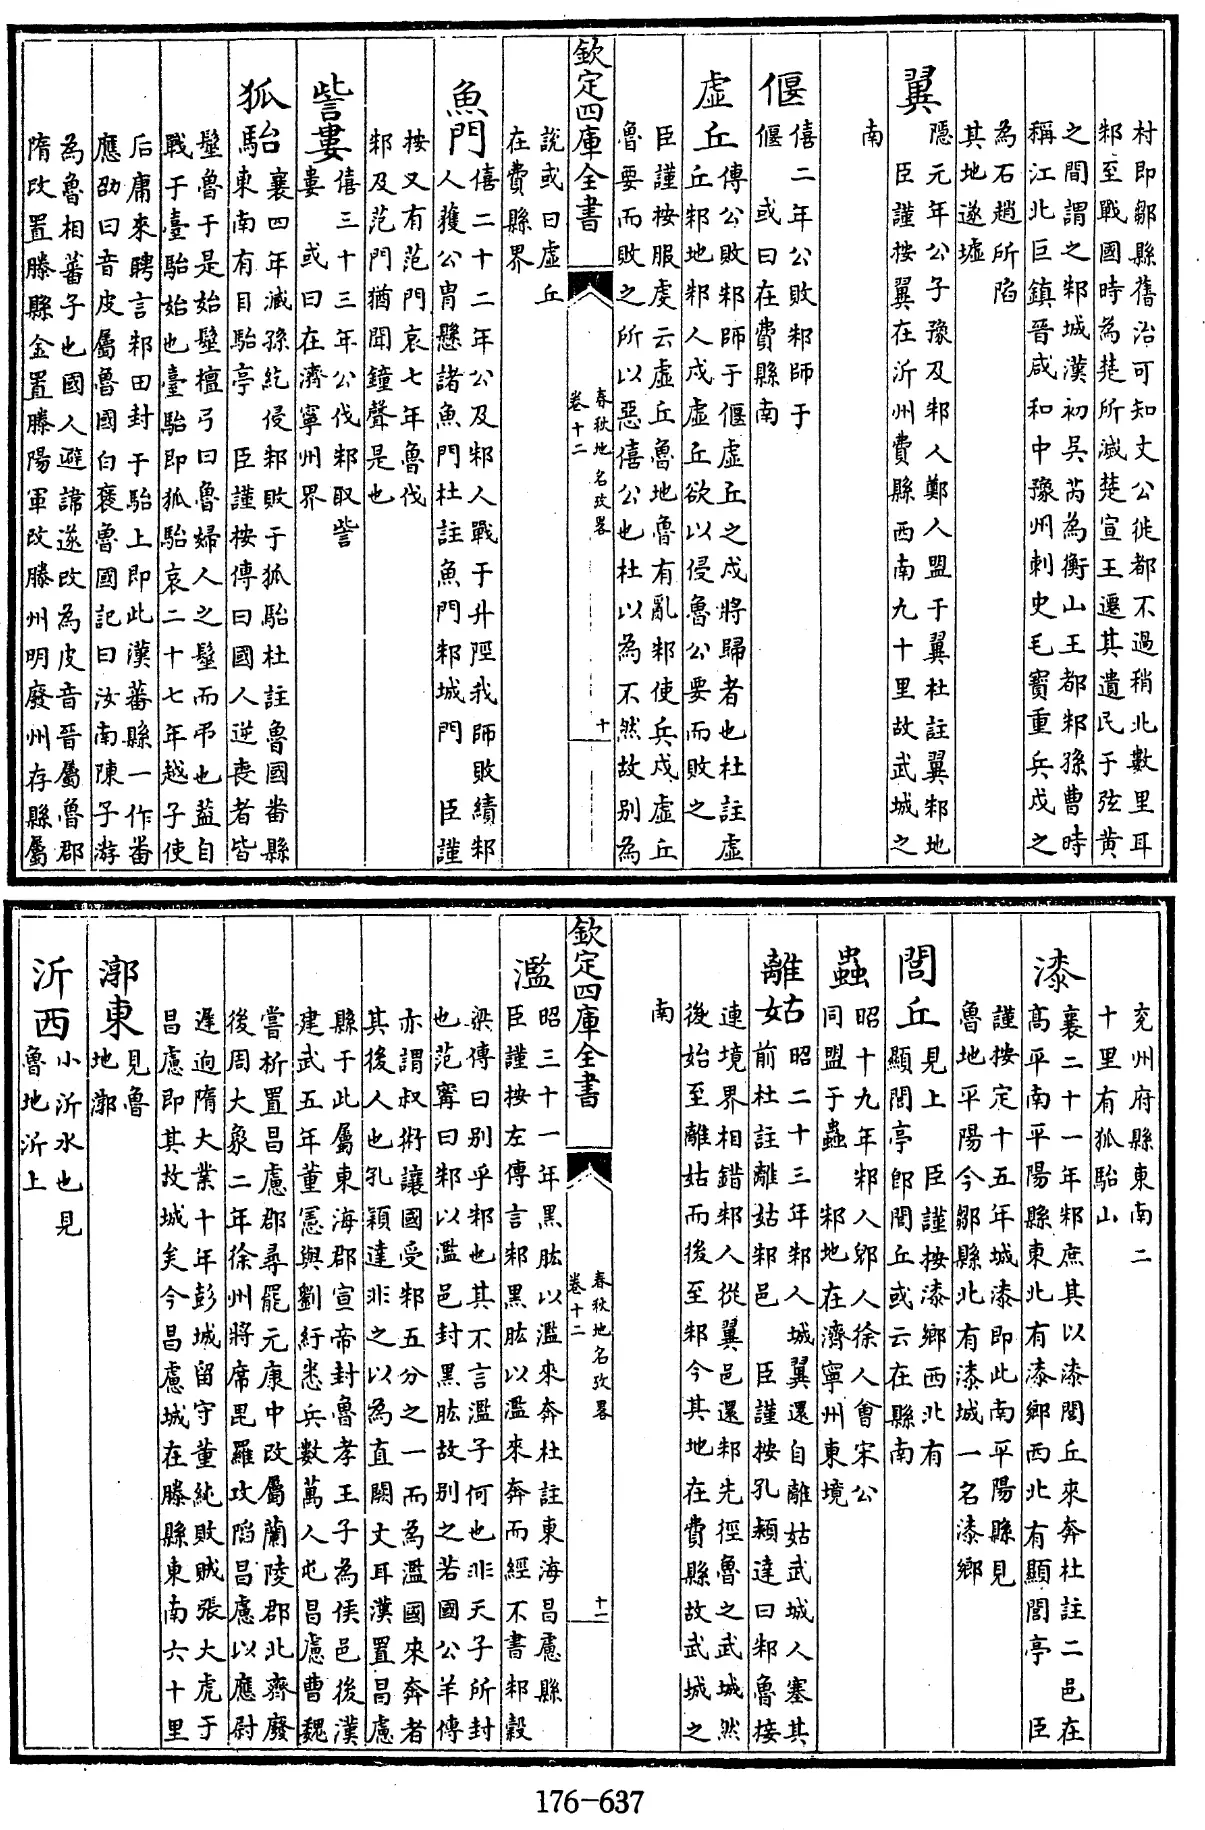 村即鄒縣舊治可知文公徙都不過稍北數里耳
邾至戰國時為楚所滅楚宣王遷其遺民于弦黄
之間謂之邾城漢初吳芮為衡山王都邾孫曹時
稱江北巨鎮晉咸和中豫州刺史毛寳重兵戍之
為石趙所陷
其地遂墟
翼
隱元年公子豫及邾人鄭人盟于翼杜註翼邾地
臣謹按翼在沂州費縣西南九十里故武城之
南
偃
僖二年公敗邾師于
偃 或曰在費縣南
虛丘
傳公敗邾師于偃虛丘之戍將歸者也杜註虛
丘邾地邾人戍虛丘欲以侵魯公要而敗之
臣謹按服虔云虛丘魯地魯有亂邾使兵戍虛丘
魯要而敗之所以惡僖公也杜以為不然故别為
欽定四庫全書
春秋地名攷畧
卷十二
十
說或曰虛丘
在費縣界
魚門
僖二十二年公及邾人戰于升陘我師敗績邾
人獲公胄懸諸魚門杜註魚門邾城門 臣謹
按又有范門哀七年魯伐
邾及范門猶聞鐘聲是也
訾婁
僖三十三年公伐邾取訾
婁 或曰在濟寧州界
狐駘
襄四年滅孫紇侵邾敗于狐駘杜註魯國番縣
東南有目駘亭 臣謹按傳曰國人逆喪者皆
髽魯于是始髽檀弓曰魯婦人之髽而弔也葢自
戰于臺駘始也臺駘即狐駘哀二十七年越子使
后庸來聘言邾田封于駘上即此漢蕃縣一作番
應劭曰音皮屬魯國白裒魯國記曰汝南陳子游
為魯相蕃子也國人避諱遂改為皮音晉屬魯郡
隋改置滕縣金置滕陽軍改滕州明廢州存縣屬
兖州府縣東南二
十里有狐駘山
漆
襄二十一年邾庶其以漆閭丘來奔杜註二邑在
髙平南平陽縣東北有漆鄉西北有顯閭亭 臣
謹按定十五年城漆即此南平陽縣見
魯地平陽今鄒縣北有漆城一名漆鄉
閭丘
見上 臣謹按漆鄉西北有
顯閭亭即閭丘或云在縣南
蟲
昭十九年邾人郳人徐人會宋公
同盟于蟲 邾地在濟寧州東境
離姑
昭二十三年邾人城翼還自離姑武城人塞其
前杜註離姑邾邑 臣謹按孔穎達曰邾魯接
連境界相錯邾人從翼邑還邾先徑魯之武城然
後始至離姑而後至邾今其地在費縣故武城之
南
欽定四庫全書
春秋地名攷畧
卷十二
十一
濫
昭三十一年黑肱以濫來奔杜註東海昌慮縣
臣謹按左傳言邾黑肱以濫來奔而經不書邾穀
梁傳曰别乎邾也其不言濫子何也非天子所封
也范寗曰邾以濫邑封黑肱故别之若國公羊傳
亦謂叔術讓國受邾五分之一而為濫國來奔者
其後人也孔穎達非之以為直闕文耳漢置昌慮
縣于此屬東海郡宣帝封魯孝王子為侯邑後漢
建武五年董憲與劉紆悉兵數萬人屯昌慮曹魏
嘗析置昌慮郡尋罷元康中改屬蘭陵郡北齊廢
後周大象二年徐州將席毘羅攻陷昌慮以應尉
遲迥隋大業十年彭城留守董純敗賊張大虎于
昌慮即其故城矣今昌慮城在滕縣東南六十里
漷東
見魯
地漷
沂西
小沂水也見
魯地沂上
176-637